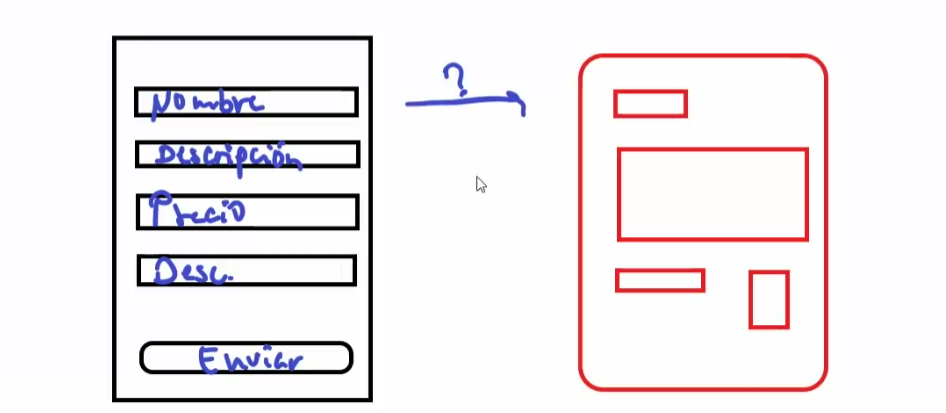 Nombre
?
Descripción
Precio
Desc.
Enviar